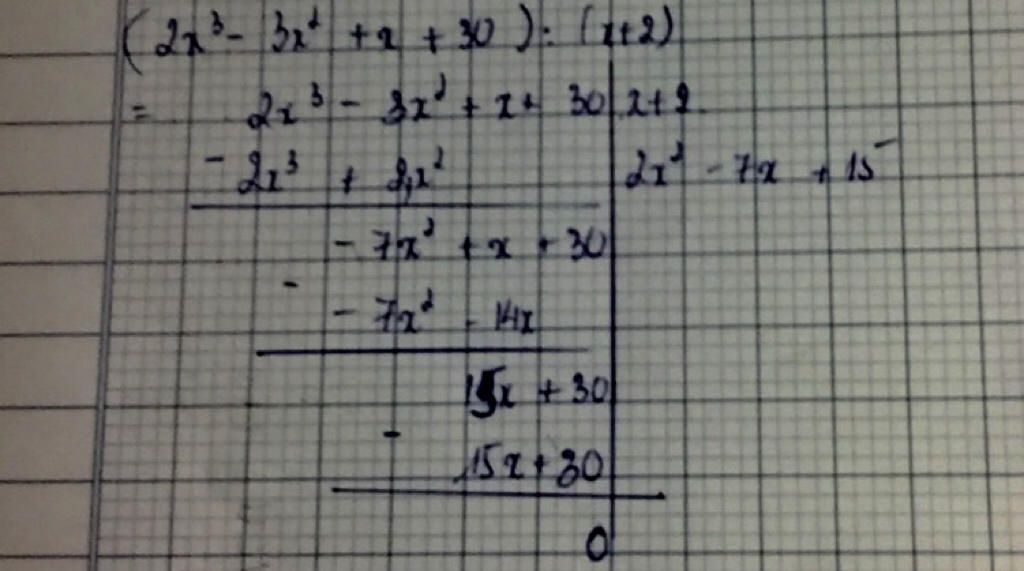 (2x³ - 3x² + x + 30) : (x+2)
= 2x³ - 3x² + x + 30 | x+2
- 2x³ + 4x² | 2x² - 7x + 15
- 7x² + x + 30
-
- 7x² - 14x
15x + 30
-
15x + 30
0